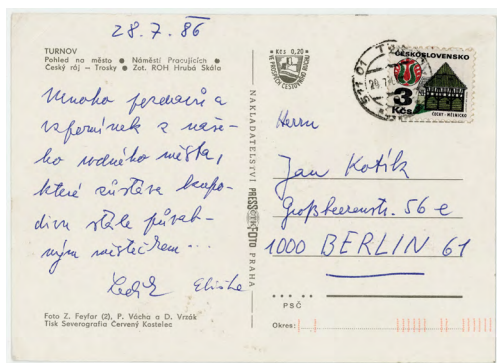 28.7.86
TURNOV
Pohled na město ● Náměstí Pracujících ●
Český ráj — Trosky ● Zot. ROH Hrubá Skála
Mnoho pozdravů a
vzpomínek z naše-
ho rodného města,
které zůstává kupo-
divu stále půvab-
ným městečkem...
Eliška
Foto Z. Feyfar (2), P. Vácha a D. Vrzák
Tisk Severografia Červený Kostelec
Kčs 0,20
VE PROSPĚCH CESTOVNÍHO RUCHU
NAKLADATELSTVÍ PRESSFOTO PRAHA
511 01
ČESKOSLOVENSKO
3
Kčs
ČECHY - MĚLNICKO
Herrn
Jan Kotík
Großbeerenstr. 56 e
1000 BERLIN 61
PSČ
Okres: